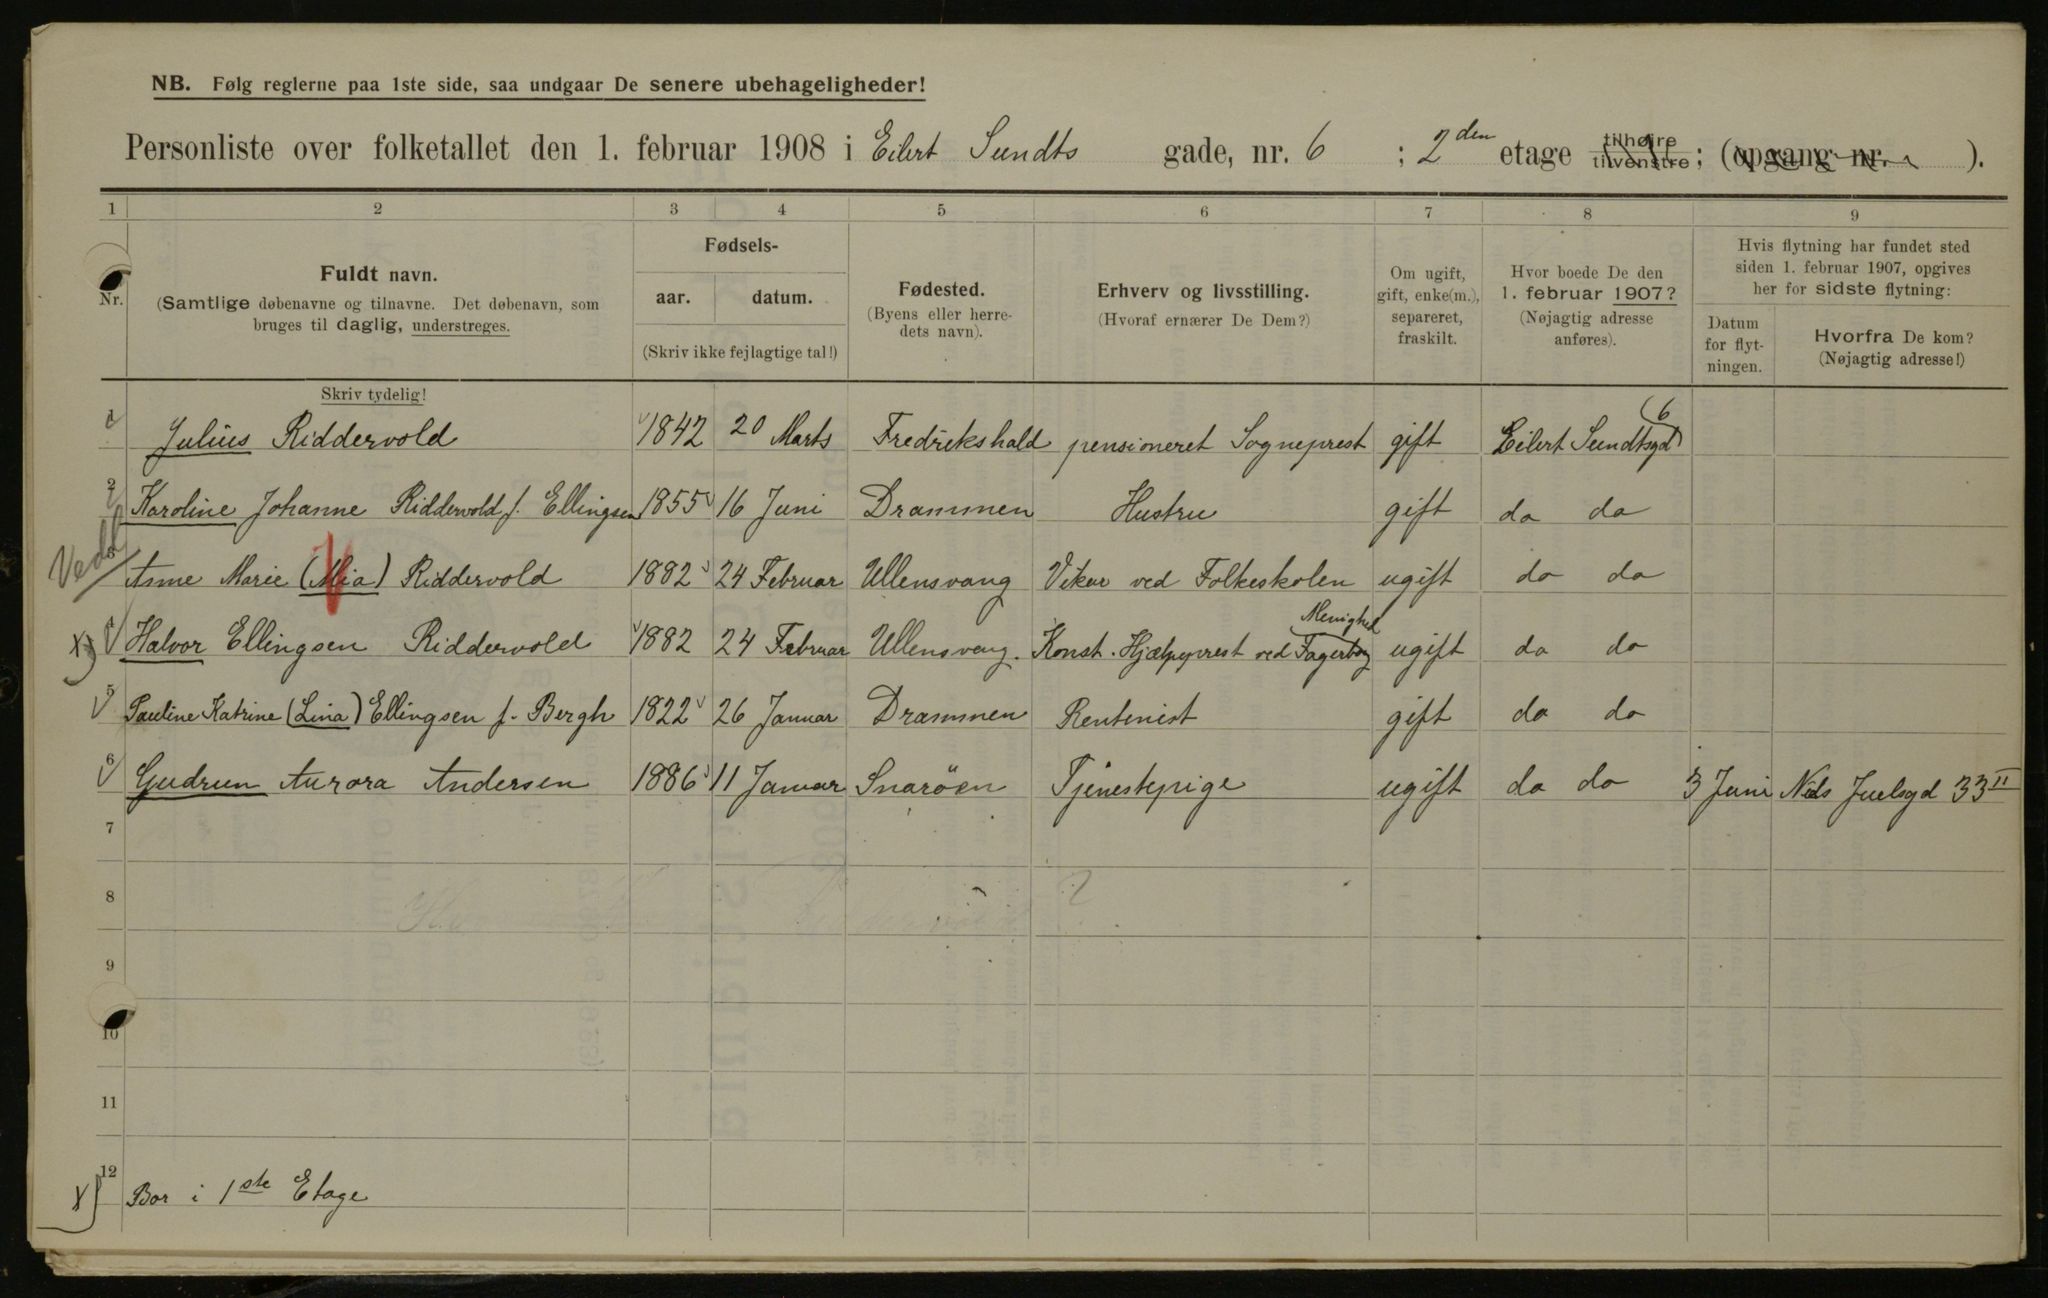 NB. Følg reglerne paa 1ste side, saa undgaar De senere ubehageligheder!
Personliste over folketallet den 1. februar 1908 i Eilert Sundts gade, nr. 6 ; 2den etage tilhøire tilvenstre ; (opgang nr. ).
1 2 3 4 5 6 7 8 9
Nr.
Fuldt navn.
(Samtlige døbenavne og tilnavne. Det døbenavn, som
bruges til daglig, understreges.
Skriv tydelig!
Fødsels-
aar. datum.
(Skriv ikke fejlagtige tal!)
Fødested.
(Byens eller herre-
dets navn).
Erhverv og livsstilling.
(Hvoraf ernærer De Dem?)
Om ugift,
gift, enke(m.),
separeret,
fraskilt.
Hvor boede De den
1. februar 1907?
(Nøjagtig adresse
anføres).
Hvis flytning har fundet sted
siden 1. februar 1907, opgives
her for sidste flytning:
Datum
for flyt-
ningen.
Hvorfra De kom?
(Nøjagtig adresse!)
1 Julius Riddervold 1842 20 Marts Fredrikshald pensioneret Sogneprest gift Eilert Sundtsgd 6
2 Karoline Johanne Riddervold f. Ellingsen 1855 16 Juni Drammen Hustru gift do do
3 Anne Marie (Mia) Riddervold 1882 24 Februar Ullensvang Vikar ved Folkeskolen ugift do do
x) 4 Halvor Ellingsen Riddervold 1882 24 Februar Ullensvang. Konst. Hjælpeprest ved Fagerborg Menighed ugift do do
5 Pauline Katrine (Lina) Ellingsen f. Bergh 1822 26 Januar Drammen Rentenist gift do do
6 Gudrun Aurora Andersen 1886 11 Januar Snaröen Tjenestepige ugift do do 3 Juni Niels Juelsgd 33 II
7
8
9
10
11
12
x) Bor i 1ste Etage